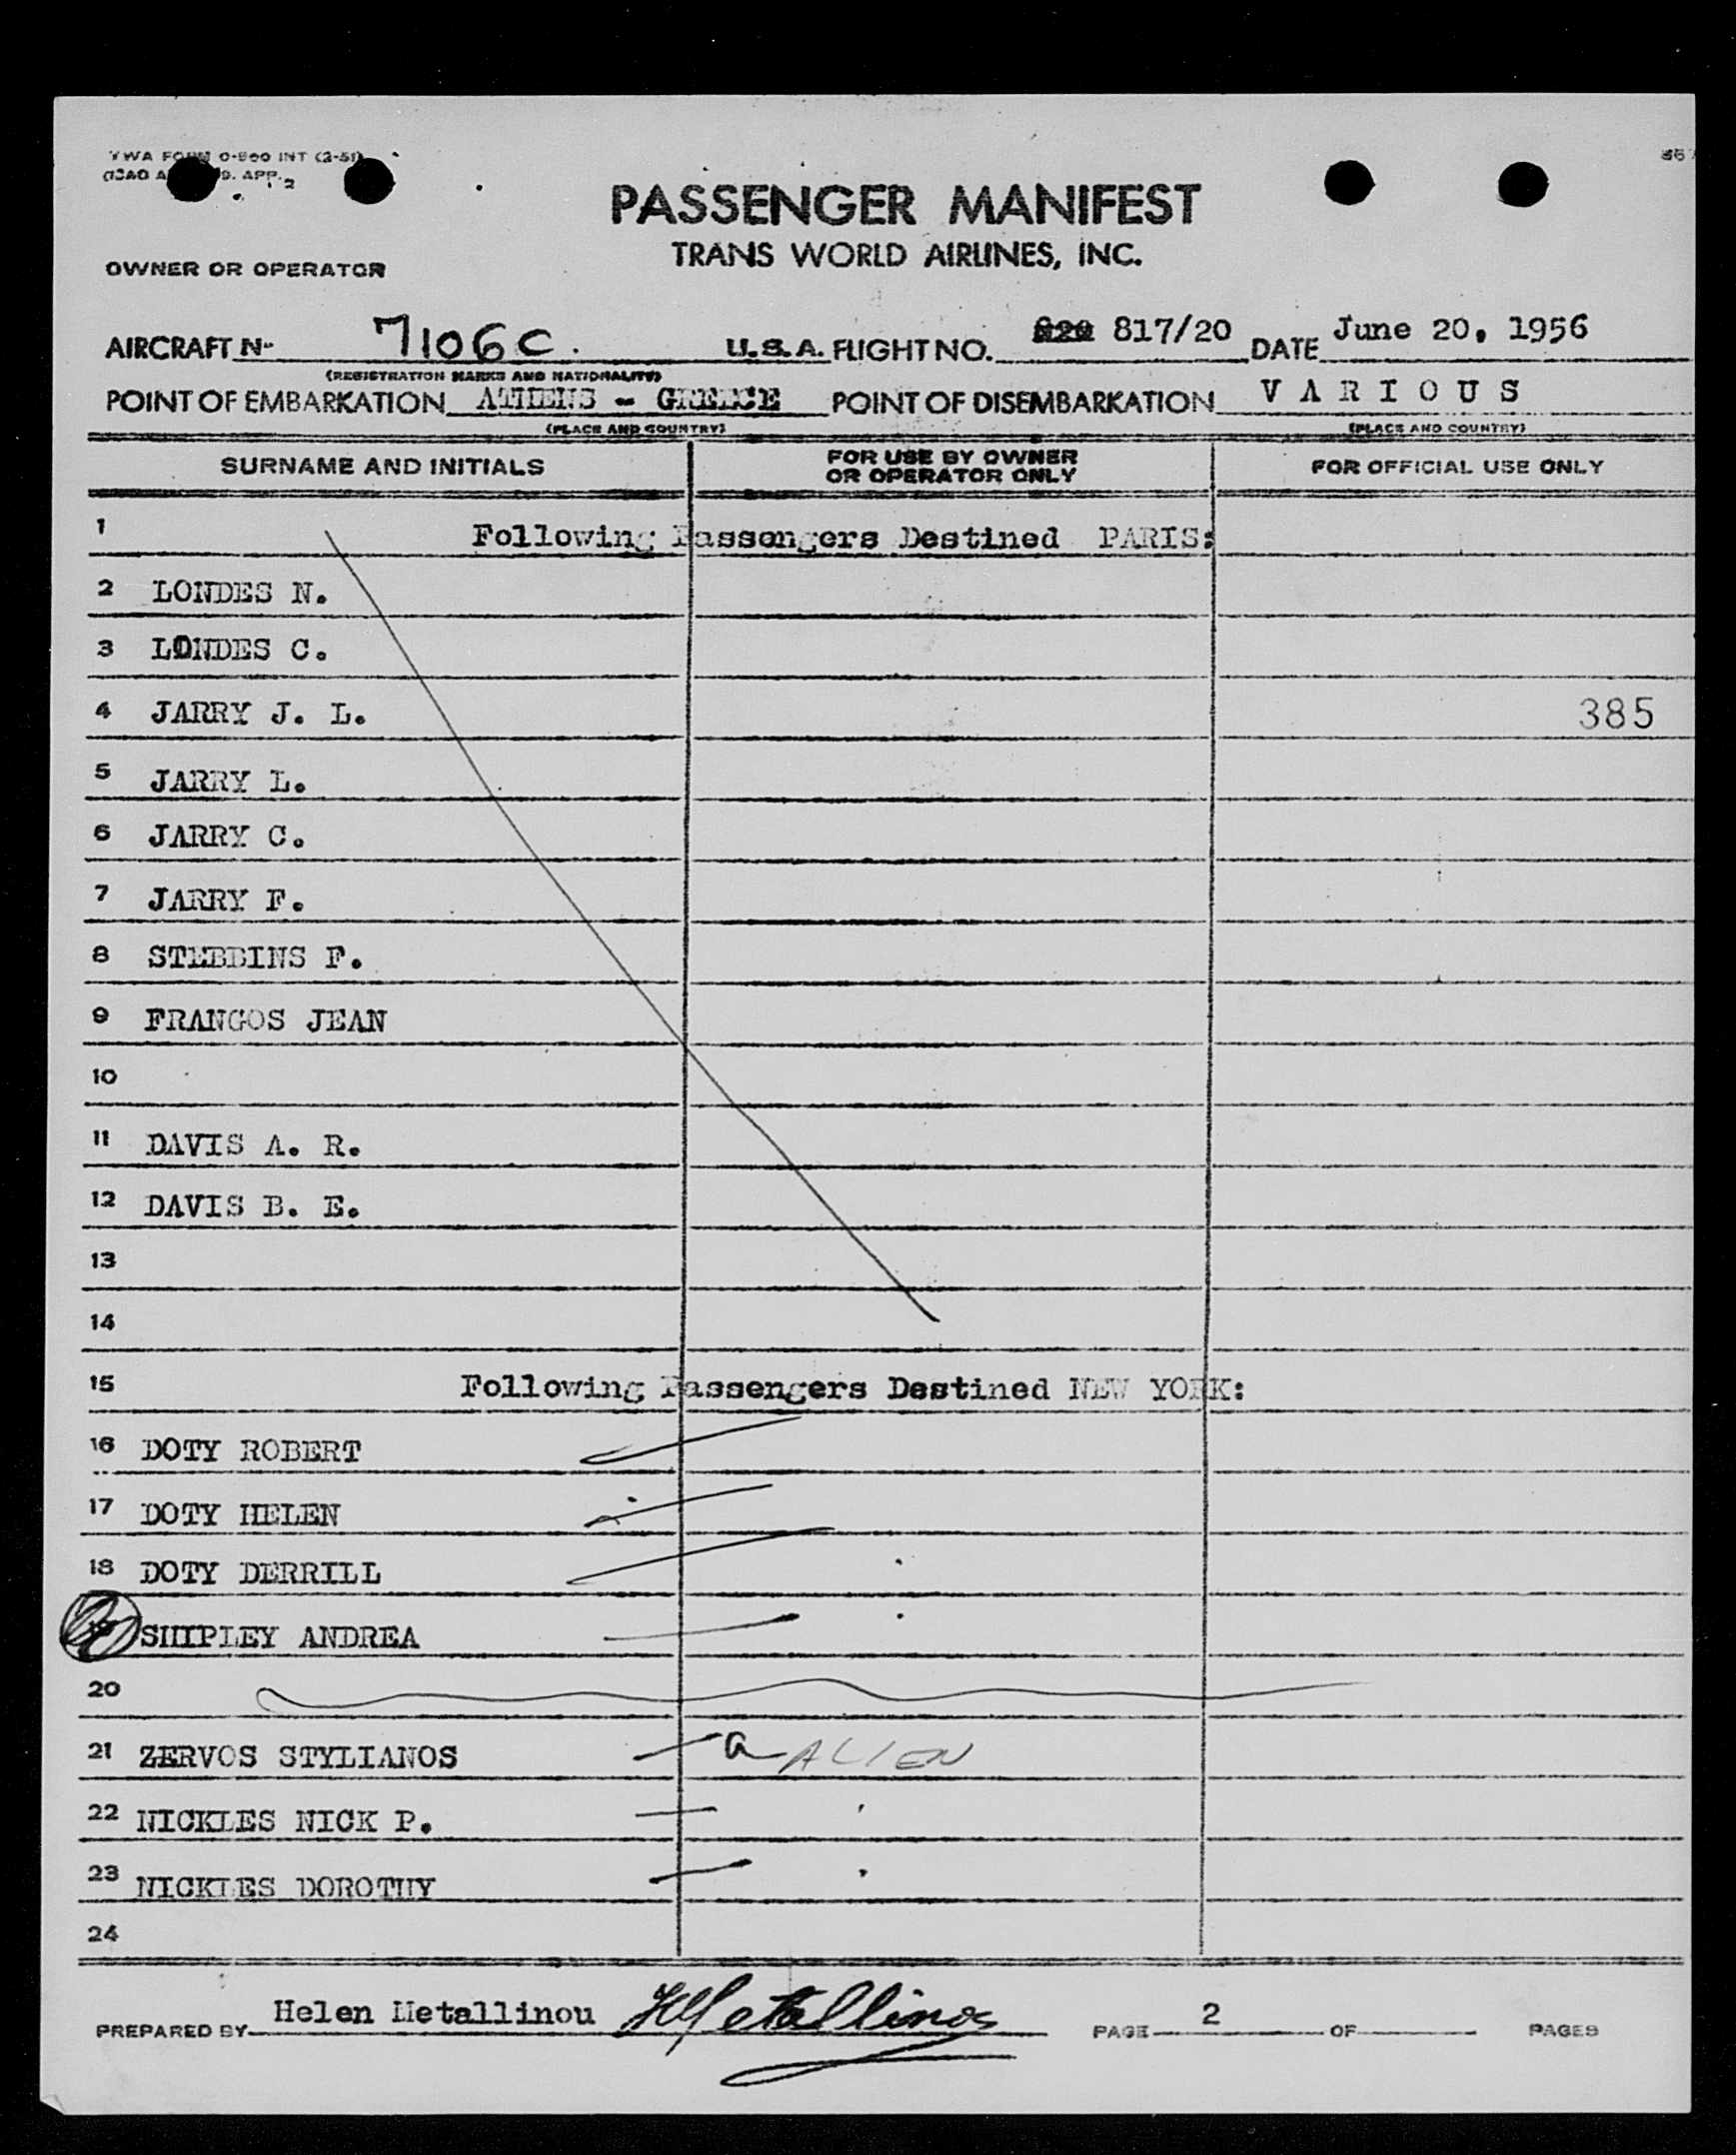 TWA FORM O-500 INT (2-51)
(ICAO 9. APP. 2
PASSENGER MANIFEST
TRANS WORLD AIRLINES, INC.
OWNER OR OPERATOR
AIRCRAFT N- 7106C. U.S.A. FLIGHT NO. 820 817/20 DATE June 20, 1956
(REGISTRATION MARKS AND NATIONALITY)
POINT OF EMBARKATION ATHENS - GREECE POINT OF DISEMBARKATION V A R I O U S
(PLACE AND COUNTRY) (PLACE AND COUNTRY)
SURNAME AND INITIALS FOR USE BY OWNER OR OPERATOR ONLY FOR OFFICIAL USE ONLY
1 Following Passengers Destined PARIS:
2 LONDES N.
3 LONDES C.
4 JARRY J. L. 385
5 JARRY L.
6 JARRY C.
7 JARRY F.
8 STEBBINS F.
9 FRANGOS JEAN
10
11 DAVIS A. R.
12 DAVIS B. E.
13
14
15 Following Passengers Destined NEW YORK:
16 DOTY ROBERT
17 DOTY HELEN
18 DOTY DERRILL
SHIPLEY ANDREA
20
21 ZERVOS STYLIANOS a ALIEN
22 NICKLES NICK P.
23 NICKLES DOROTHY
24
PREPARED BY Helen Metallinou HMetallinou PAGE 2 OF PAGES